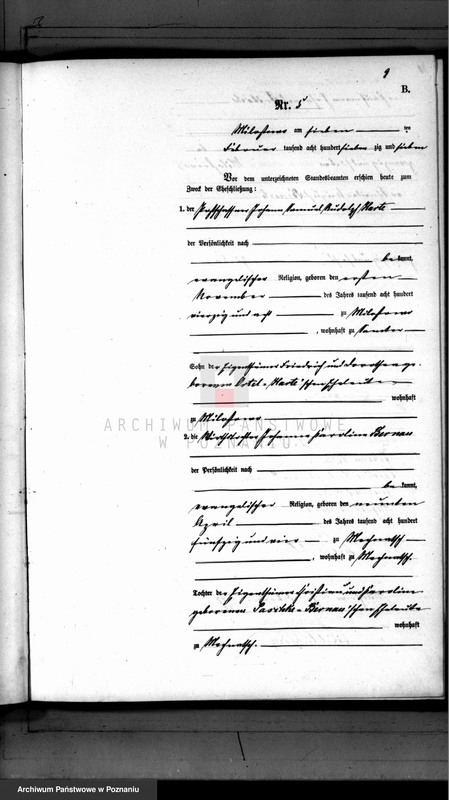 9
B.
Nr. 5
Milostowo am sieben ten
Februar tausend acht hundert sieben zig und sieben
Vor dem unterzeichneten Standesbeamten erschien heute zum
Zweck der Eheschließung:
1. der Johann Samuel Rudolph
der Persönlichkeit nach
be kannt,
evangelischer Religion, geboren den ersten
November des Jahres tausend acht hundert
vierzig und acht zu Milostowo
, wohnhaft zu
Sohn der Eigenthümer Friedrich und Dorothea ge-
borenen 'schen Eheleute
wohnhaft
zu Milostowo
ARCHIWUM PAŃSTWOWE
W POZNANIU
2. die Johanne Karoline Bernau
der Persönlichkeit nach
be kannt,
evangelischer Religion, geboren den neunten
April des Jahres tausend acht hundert
fünfzig und vier zu Mechnatsch
, wohnhaft zu Mechnatsch.
Tochter der Eigenthümer Christian und Karoline
geborenen Bernau'schen Eheleute
wohnhaft
zu Mechnatsch.
Archiwum Państwowe w Poznaniu